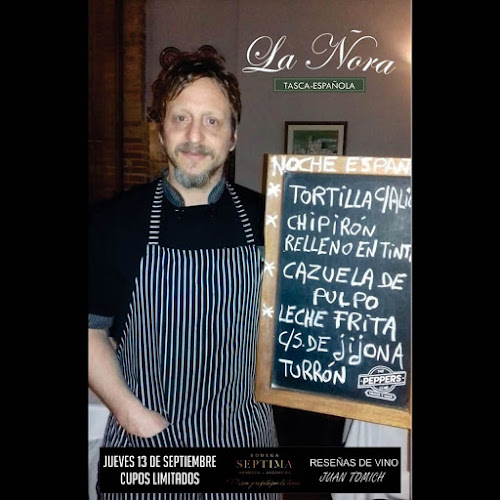 La Ñora
TASCA-ESPAÑOLA
NOCHE ESPAÑ
* TORTILLA C/ALIO
* CHIPIRÓN
RELLENO EN TINTA
* CAZUELA DE
PULPO
* LECHE FRITA
C/S. DE JIJONA
TURRÓN
THE
PEPPERS
JUEVES 13 DE SEPTIEMBRE
CUPOS LIMITADOS
BODEGA
SEPTIMA
MENDOZA - ARGENTINA
RESEÑAS DE VINO
JUAN TOMICH